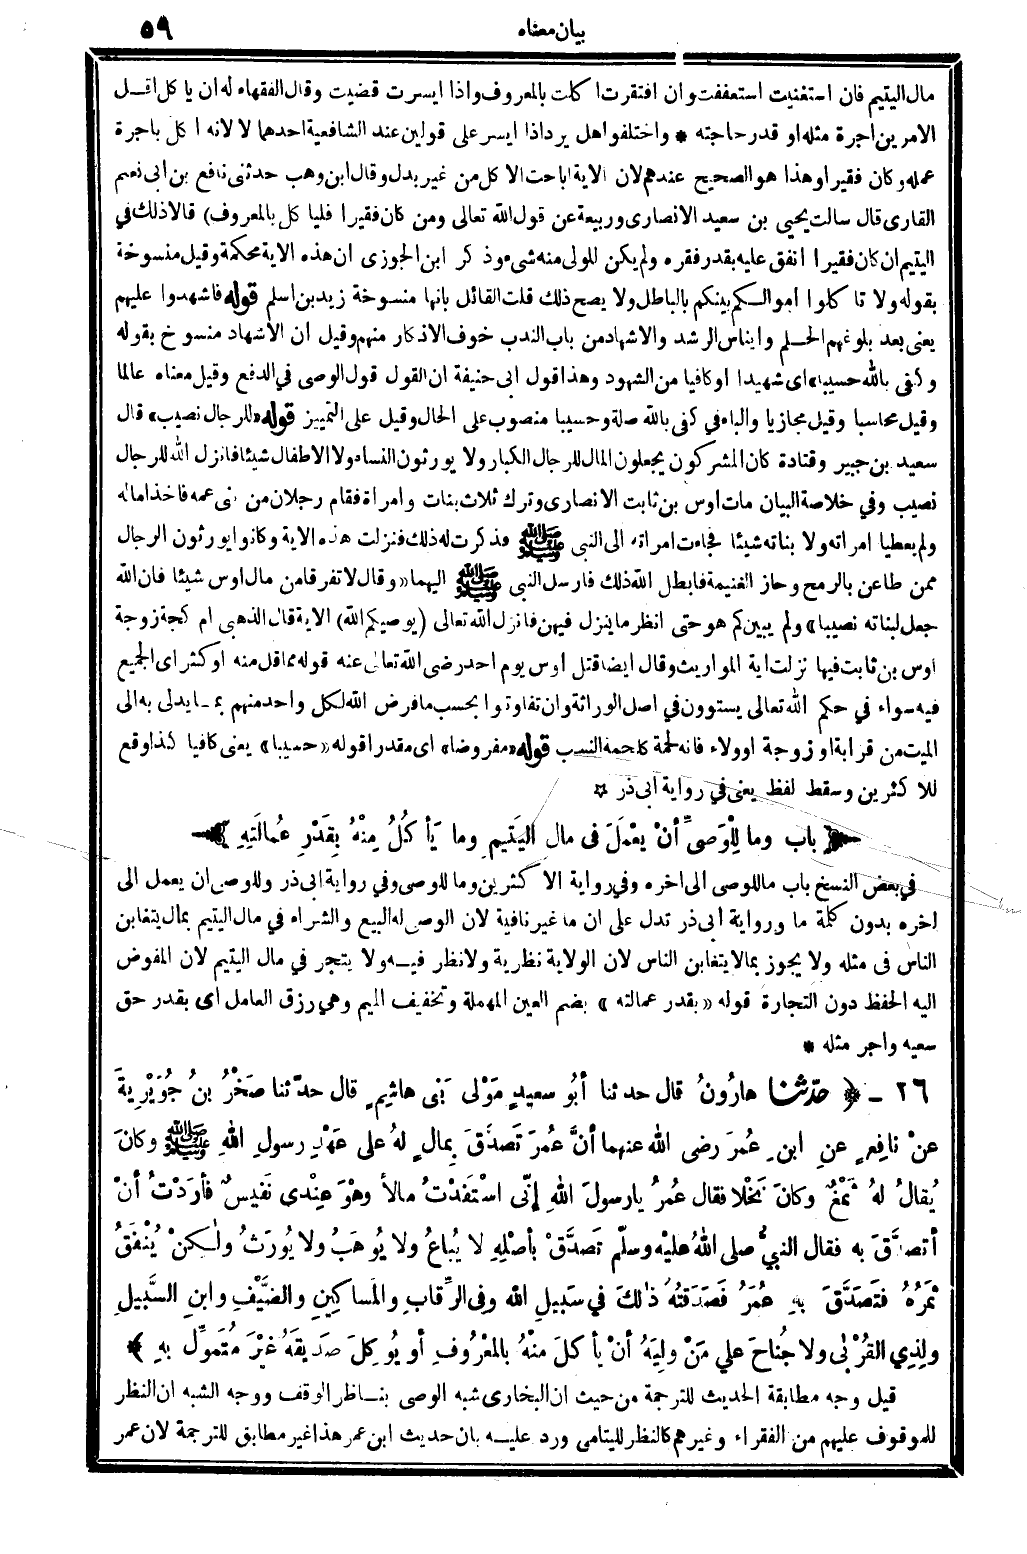 بيان معناه ٥٩
مال اليتيم فان استغنيت استعففت وان افتقرت اكلت بالمعروف واذا ايسرت قضيت وقال الفقهاء له ان ياكل اقل
الامرين اجرة مثله او قدر حاجته * واختلفوا هل يرد اذا ايسر على قولين عند الشافعية احدهما لا لانه اكل باجرة
عمله وكان فقيرا وهذا هو الصحيح عندهم لان الاية اباحت الاكل من غير بدل وقال ابن وهب حدثنى نافع بن ابى نعيم
القارى قال سالت يحيى بن سعيد الانصارى وربيعة عن قول الله تعالى ومن كان فقيرا فليا كل بالمعروف) قالا ذلك في
اليتيم ان كان فقيرا انفق عليه بقدر فقره ولم يكن للولى منه شىء وذكر ابن الجوزى ان هذه الاية محكمة وقيل منسوخة
بقوله ولا تاكلوا اموالكم بينكم بالباطل ولا يصح ذلك قلت القائل بانها منسوخة زيد بن اسلم قوله فاشهدوا عليهم
يعنى بعد بلوغهم الحلم وايناس الرشد والاشهاد من باب الندب خوف الانكار منهم وقيل ان الاشهاد منسوخ بقوله
وكفى بالله حسيبا» اى شهيدا او كافيا من الشهود وهذا قول ابى حنيفة ان القول قول الوصى في الدفع وقيل معناه عالما
وقيل محاسبا وقيل مجازيا والباء في كفى بالله صلة وحسيبا منصوب على الحال وقيل على التمييز قوله «للرجال نصيب» قال
سعيد بن جبير وقتادة كان المشركون يجعلون المال للرجال الكبار ولا يورثون النساء ولا الاطفال شيئا فانزل الله للرجال
نصيب وفي خلاصة البيان مات اوس بن ثابت الانصارى وترك ثلاث بنات وامراة فقام رجلان من بنى عمه فاخذا ماله
ولم يعطيا امراته ولا بناته شيئا فجاءت امراته الى النبى ﷺ فذكرت له ذلك فنزلت هذه الاية وكانوا يورثون الرجال
ممن طاعن بالرمح وحاز الغنيمة فابطل الله ذلك فارسل النبى ﷺ اليهما «وقال لا تفرقا من مال اوس شيئا فان الله
جعل لبناته نصيبا» ولم يبين كم هو حتى انظر ما ينزل فيهن فانزل الله تعالى (يوصيكم الله) الاية قال الذهبى ام كجة زوجة
اوس بن ثابت فيها نزلت اية المواريث وقال ايضا قتل اوس يوم احد رضى الله تعالى عنه قوله مما قل منه او كثر اى الجميع
فيه سواء في حكم الله تعالى يستوون في اصل الوراثة وان تفاوتوا بحسب ما فرض الله لكل واحد منهم بما يدلى به الى
الميت من قرابة او زوجة او ولاء فانه لحمة كلحمة النسب قوله «مفروضا» اى مقدرا قوله «حسيبا» يعنى كافيا كذا وقع
للاكثرين وسقط لفظ يعنى في رواية ابى ذر ☆
﴿ باب وما لِلْوَصِىِّ أَنْ يَعْمَلَ فى مالِ اليَتِيمِ وما يَأكُلُ مِنْهُ بِقَدْرِ عُمالَتِهِ ﴾
في بعض النسخ باب ما للوصى الى اخره وفي رواية الاكثرين وما للوصى وفي رواية ابى ذر وللوصى ان يعمل الى
اخره بدون كلمة ما ورواية أبى ذر تدل على ان ما غير نافية لان الوصى له البيع والشراء في مال اليتيم بما يتغابن
الناس فى مثله ولا يجوز بما لا يتغابن الناس لان الولاية نظرية ولا نظر فيه ولا يتجر في مال اليتيم لان المفوض
اليه الحفظ دون التجارة قوله «بقدر عمالته» بضم العين المهملة وتخفيف الميم وهي رزق العامل اى بقدر حق
سعيه واجر مثله *
٢٦ ـ ﴿ حدّثنا هارُونُ قال حدثنا أبُو سعيدٍ مَوْلى بَنى هاشِمٍ قال حدّثنا صَخْرُ بنُ جُوَيْرِيةَ
عنْ نافِعٍ عنِ ابنِ عُمرَ رضى الله عنهما أنَّ عُمرَ تَصَدَّقَ بِمالٍ لهُ على عَهْدِ رسولِ اللهِ ﷺ وكانَ
يُقالُ لهُ ثَمْغٌ وكانَ نَخْلا فقال عُمرُ يارسولَ اللهِ إنّى اسْتَفَدْتُ مالاً وهْوَ عِنْدِى نَفِيسٌ فأرَدْتُ أنْ
أتصدَّقَ به فقال النبيُّ صلى اللهُ عليْهِ وسلّم تَصَدَّقْ بأصْلِهِ لا يُباعُ ولا يُوهَبُ ولا يُورَثُ ولٰكِنْ يُنْفَقُ
ثمَرُهُ فتَصَدَّقَ بهِ عُمَرُ فصَدَقتُهُ ذٰلكَ في سَبيلِ اللهِ وفى الرِّقابِ والمَساكِينِ والضَّيْفِ وابنِ السَّبيلِ
ولِذِي القُرْبَى ولا جُناحَ علي مَنْ ولِيَهُ أنْ يأكلَ منْهُ بالمَعْرُوفِ أو يُوكِلَ صَدِيقَهُ غيْرَ مُتَموِّلٍ بهِ ﴾
قيل وجه مطابقة الحديث للترجمة من حيث ان البخارى شبه الوصى بناظر الوقف ووجه الشبه ان النظر
للموقوف عليهم من الفقراء وغيرهم كالنظر لليتامى ورد عليه بان حديث ابن عمر هذا غير مطابق للترجمة لان عمر